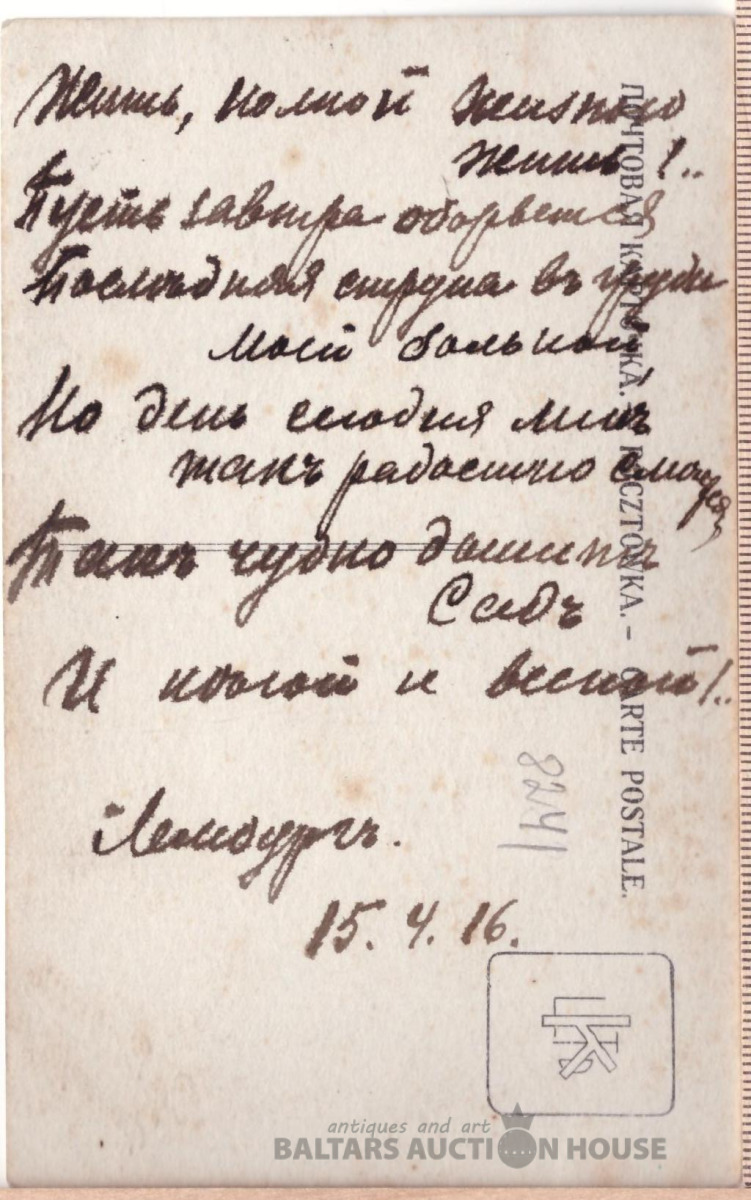 Жить, полной жизнью
жить!..
Пусть завтра оборвется
Последняя струна въ груди
моей больной,
Но день сегодня мнѣ
такъ радостно смѣется,
Такъ чудно дышитъ
Садъ
И негой и весной!..
Лембергъ.
15.4.16.
8241
ПОЧТОВАЯ КАРТОЧКА. - POCZTÓWKA. - CARTE POSTALE.
antiques and art
BALTARS AUCTION HOUSE